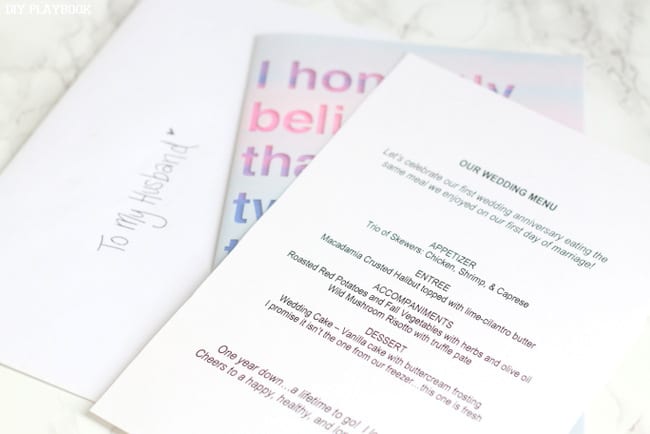 DIY PLAYBOOK
To My Husband
I
beli
tha
ty
OUR WEDDING MENU
Let's celebrate our first wedding anniversary eating the
same meal we enjoyed on our first day of marriage!
APPETIZER
Trio of Skewers: Chicken, Shrimp, & Caprese
ENTREE
Macadamia Crusted Halibut topped with lime-cilantro butter
ACCOMPANIMENTS
Roasted Red Potatoes and Fall Vegetables with herbs and olive oil
Wild Mushroom Risotto with truffle pate
DESSERT
Wedding Cake – Vanilla cake with buttercream frosting
I promise it isn't the one from our freezer...this one is fresh
One year down...a lifetime to go! I
Cheers to a happy, healthy, and